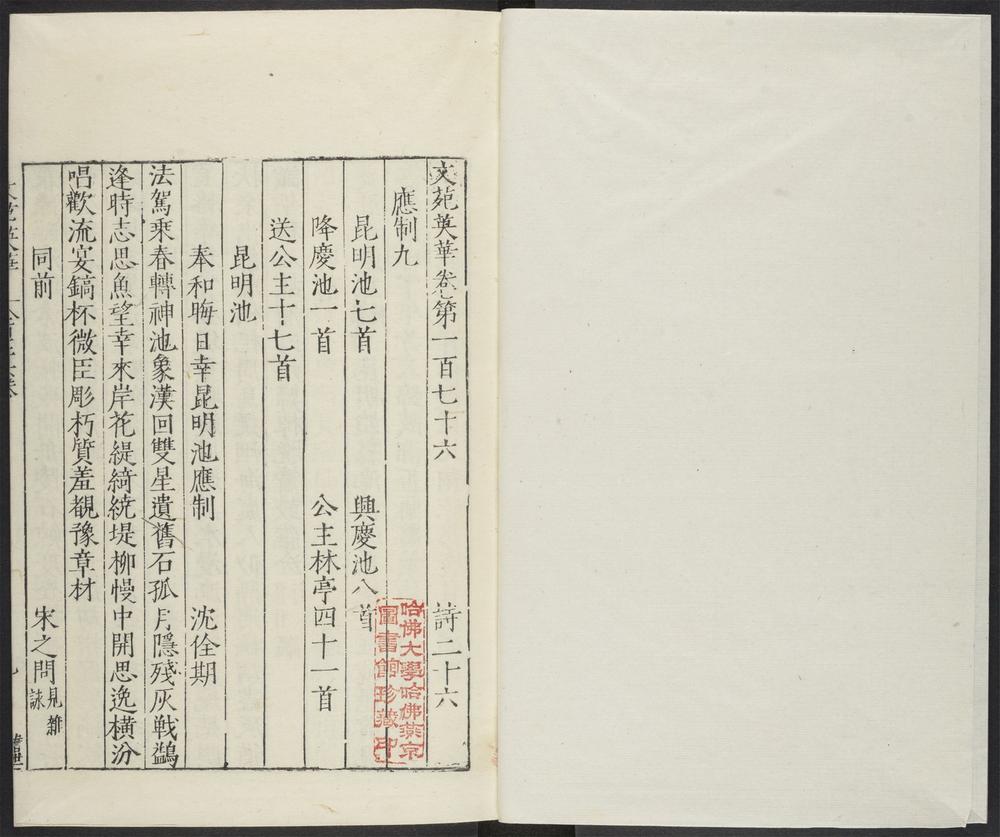 文苑英華卷第一百七十六 詩二十六
應制九
昆明池七首 興慶池八首
降慶池一首 公主林亭四十一首
送公主十七首
昆明池
奉和晦日幸昆明池應制 沈佺期
法駕乘春轉神池象漢回雙星遺舊石孤月隱殘灰戰鷁
逢時志思魚望幸來岸花緹綺繞堤柳幔中開思逸橫汾
唱歡流宴鎬杯微臣彫朽質羞覩豫章材
同前 宋之問 見雜
詠
哈佛大學哈佛燕京
圖書館珍藏印